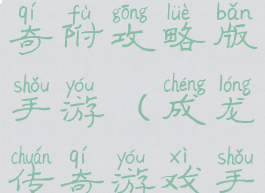 qí fù gōng lüè bǎn
奇附攻略版
shǒu yóu chéng lóng
手游（成龙
chuán qí yóu xì shǒu
传奇游戏手